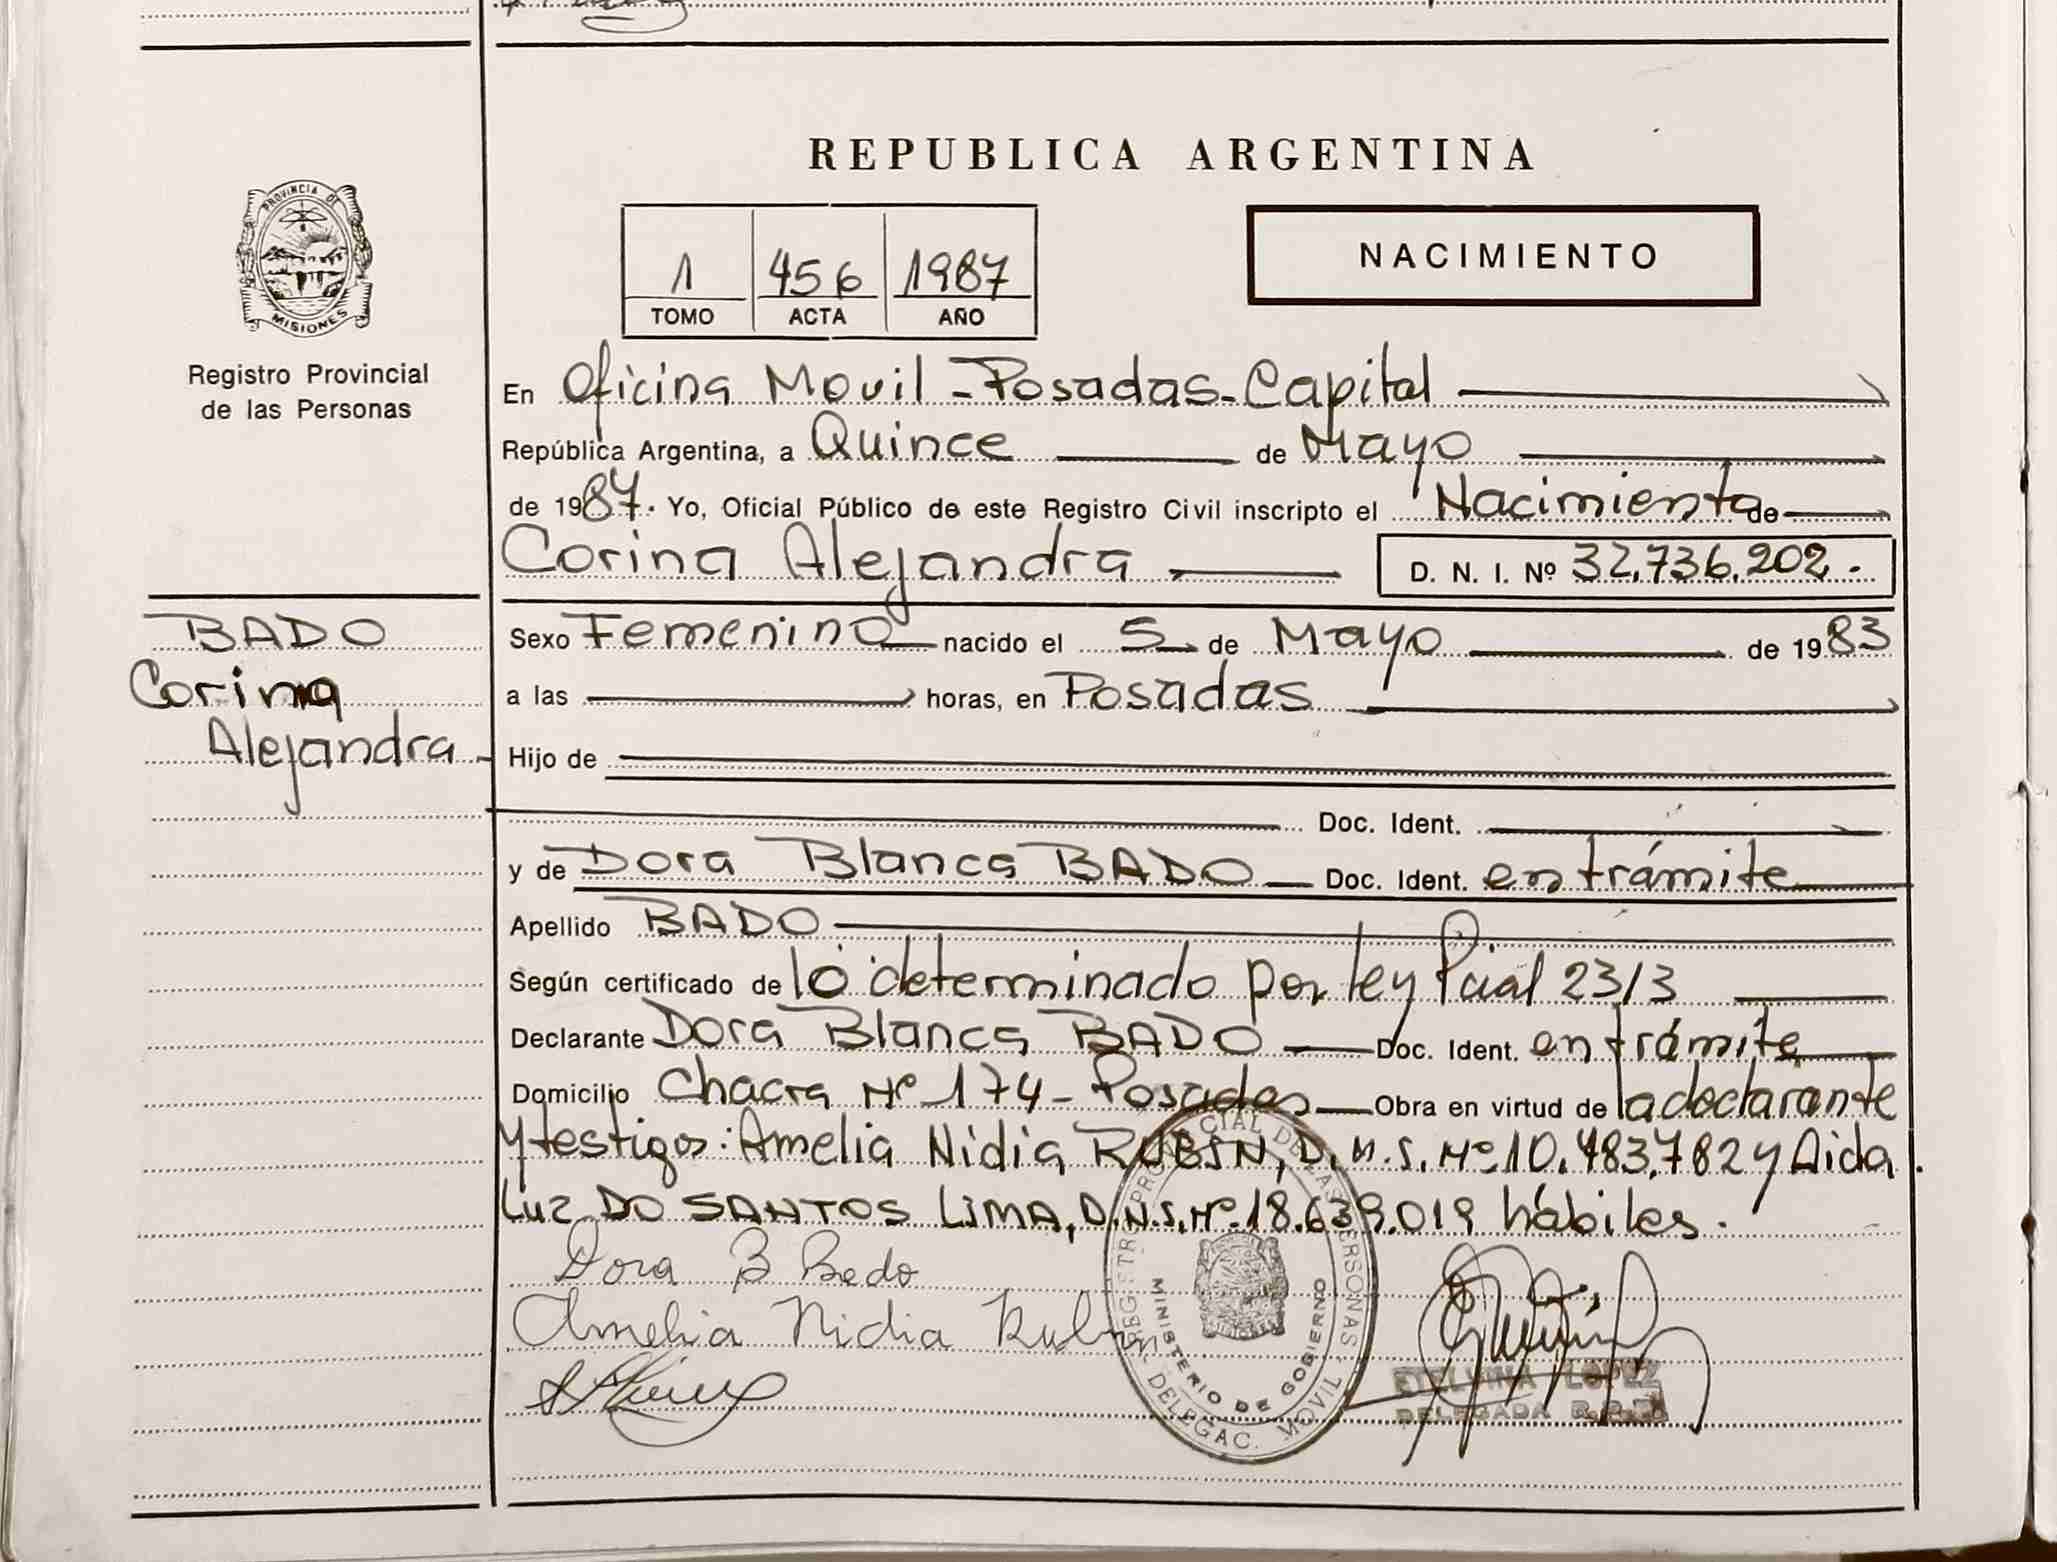 REPUBLICA ARGENTINA
PROVINCIA DE
MISIONES
Registro Provincial
de las Personas
1 456 1987
TOMO ACTA AÑO
NACIMIENTO
En Oficina Movil - Posadas - Capital
República Argentina, a Quince de Mayo
de 1987. Yo, Oficial Público de este Registro Civil inscripto el Nacimiento de
Corina Alejandra D. N. I. Nº 32.736.202.
BADO
Corina
Alejandra
Sexo Femenino nacido el 5 de Mayo de 1983
a las horas, en Posadas
Hijo de
Doc. Ident.
y de Dora Blanca BADO Doc. Ident. en trámite
Apellido BADO
Según certificado de lo determinado por ley Pcial 2313
Declarante Dora Blanca BADO Doc. Ident. en trámite
Domicilio Chacra Nº 174 - Posadas Obra en virtud de la declarante
y testigos: Amelia Nidia RUBIN, D.N.I. Nº 10.483.782 y Aida
Luz DO SANTOS LIMA, D.N.I. Nº 18.639.019 hábiles.
Dora B Bado
Amelia Nidia Rubin
REGISTRO PROVINCIAL DE LAS PERSONAS
MINISTERIO DE GOBIERNO
DELEGAC. MOVIL
ETELVINA LOPEZ
DELEGADA R.P.P.